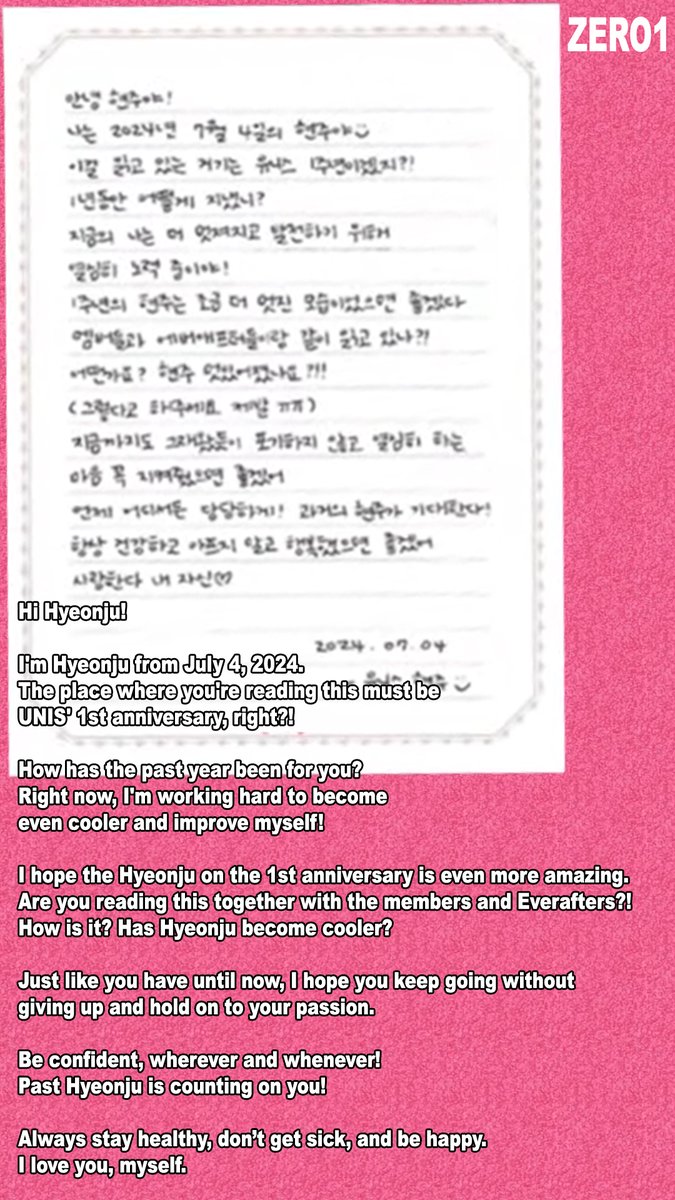 ZERO1
안녕 현주야!
나는 2024년 7월 4일의 현주야
이걸 읽고 있는 거기는 유니스 1주년이겠지?!
1년동안 어떻게 지냈니?
지금의 나는 더 멋져지고 발전하기 위해
열심히 노력 중이야!
1주년의 현주는 조금 더 멋진 모습이었으면 좋겠다
멤버들과 에버애프터들이랑 같이 읽고 있나?!
어떤가요? 현주 멋있어졌나요?!!
(그렇다고 해주세요 제발 ㅠㅠ)
지금까지도 그래왔듯이 포기하지 않고 열심히 하는
마음 꼭 지켜줬으면 좋겠어
언제 어디서든 당당하게! 과거의 현주가 기대한다!
항상 건강하고 아프지 말고 행복했으면 좋겠어
사랑한다 내 자신♡
2024.07.04
유니스 현주
Hi Hyeonju!
I'm Hyeonju from July 4, 2024.
The place where you're reading this must be
UNIS' 1st anniversary, right?!
How has the past year been for you?
Right now, I'm working hard to become
even cooler and improve myself!
I hope the Hyeonju on the 1st anniversary is even more amazing.
Are you reading this together with the members and Everafters?!
How is it? Has Hyeonju become cooler?
Just like you have until now, I hope you keep going without
giving up and hold on to your passion.
Be confident, wherever and whenever!
Past Hyeonju is counting on you!
Always stay healthy, don't get sick, and be happy.
I love you, myself.